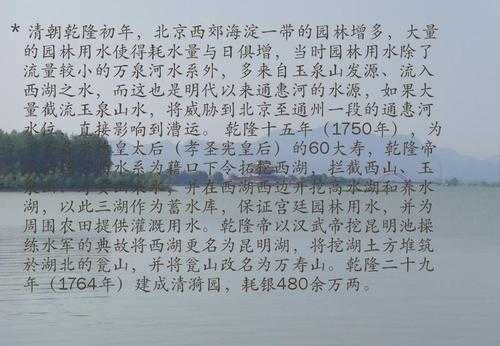 * 清朝乾隆初年，北京西郊海淀一带的园林增多，大量
的园林用水使得耗水量与日俱增，当时园林用水除了
流量较小的万泉河水系外，多来自玉泉山发源、流入
西湖之水，而这也是明代以来通惠河的水源，如果大
量截流玉泉山水，将威胁到北京至通州一段的通惠河
水位，直接影响到漕运。乾隆十五年（1750年），为
皇太后（孝圣宪皇后）的60大寿，乾隆帝
水系为藉口下令拓挖西湖，拦截西山、玉
并在西湖西边开挖高水湖和养水
湖，以此三湖作为蓄水库，保证宫廷园林用水，并为
周围农田提供灌溉用水。乾隆帝以汉武帝挖昆明池操
练水军的典故将西湖更名为昆明湖，将挖湖土方堆筑
於湖北的瓮山，并将瓮山改名为万寿山。乾隆二十九
年（1764年）建成清漪园，耗银480余万两。